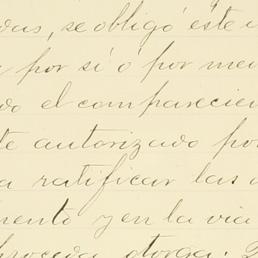 das, se obligó este
por sí ó por me
do el comparecien
te autorizado por
a ratificar las
mento y en la via
proceda, otorga: